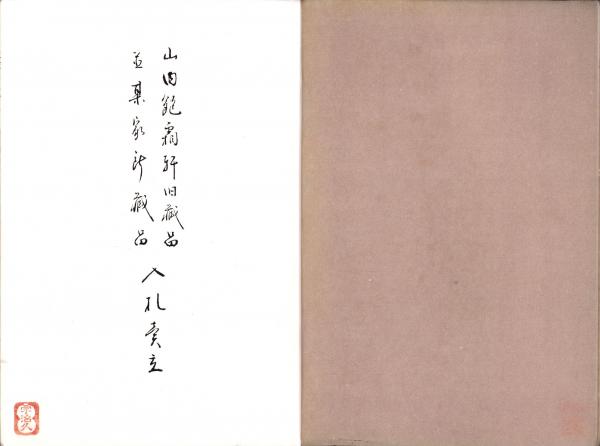 山内飽霜軒旧蔵品
並某家所蔵品
入札売立